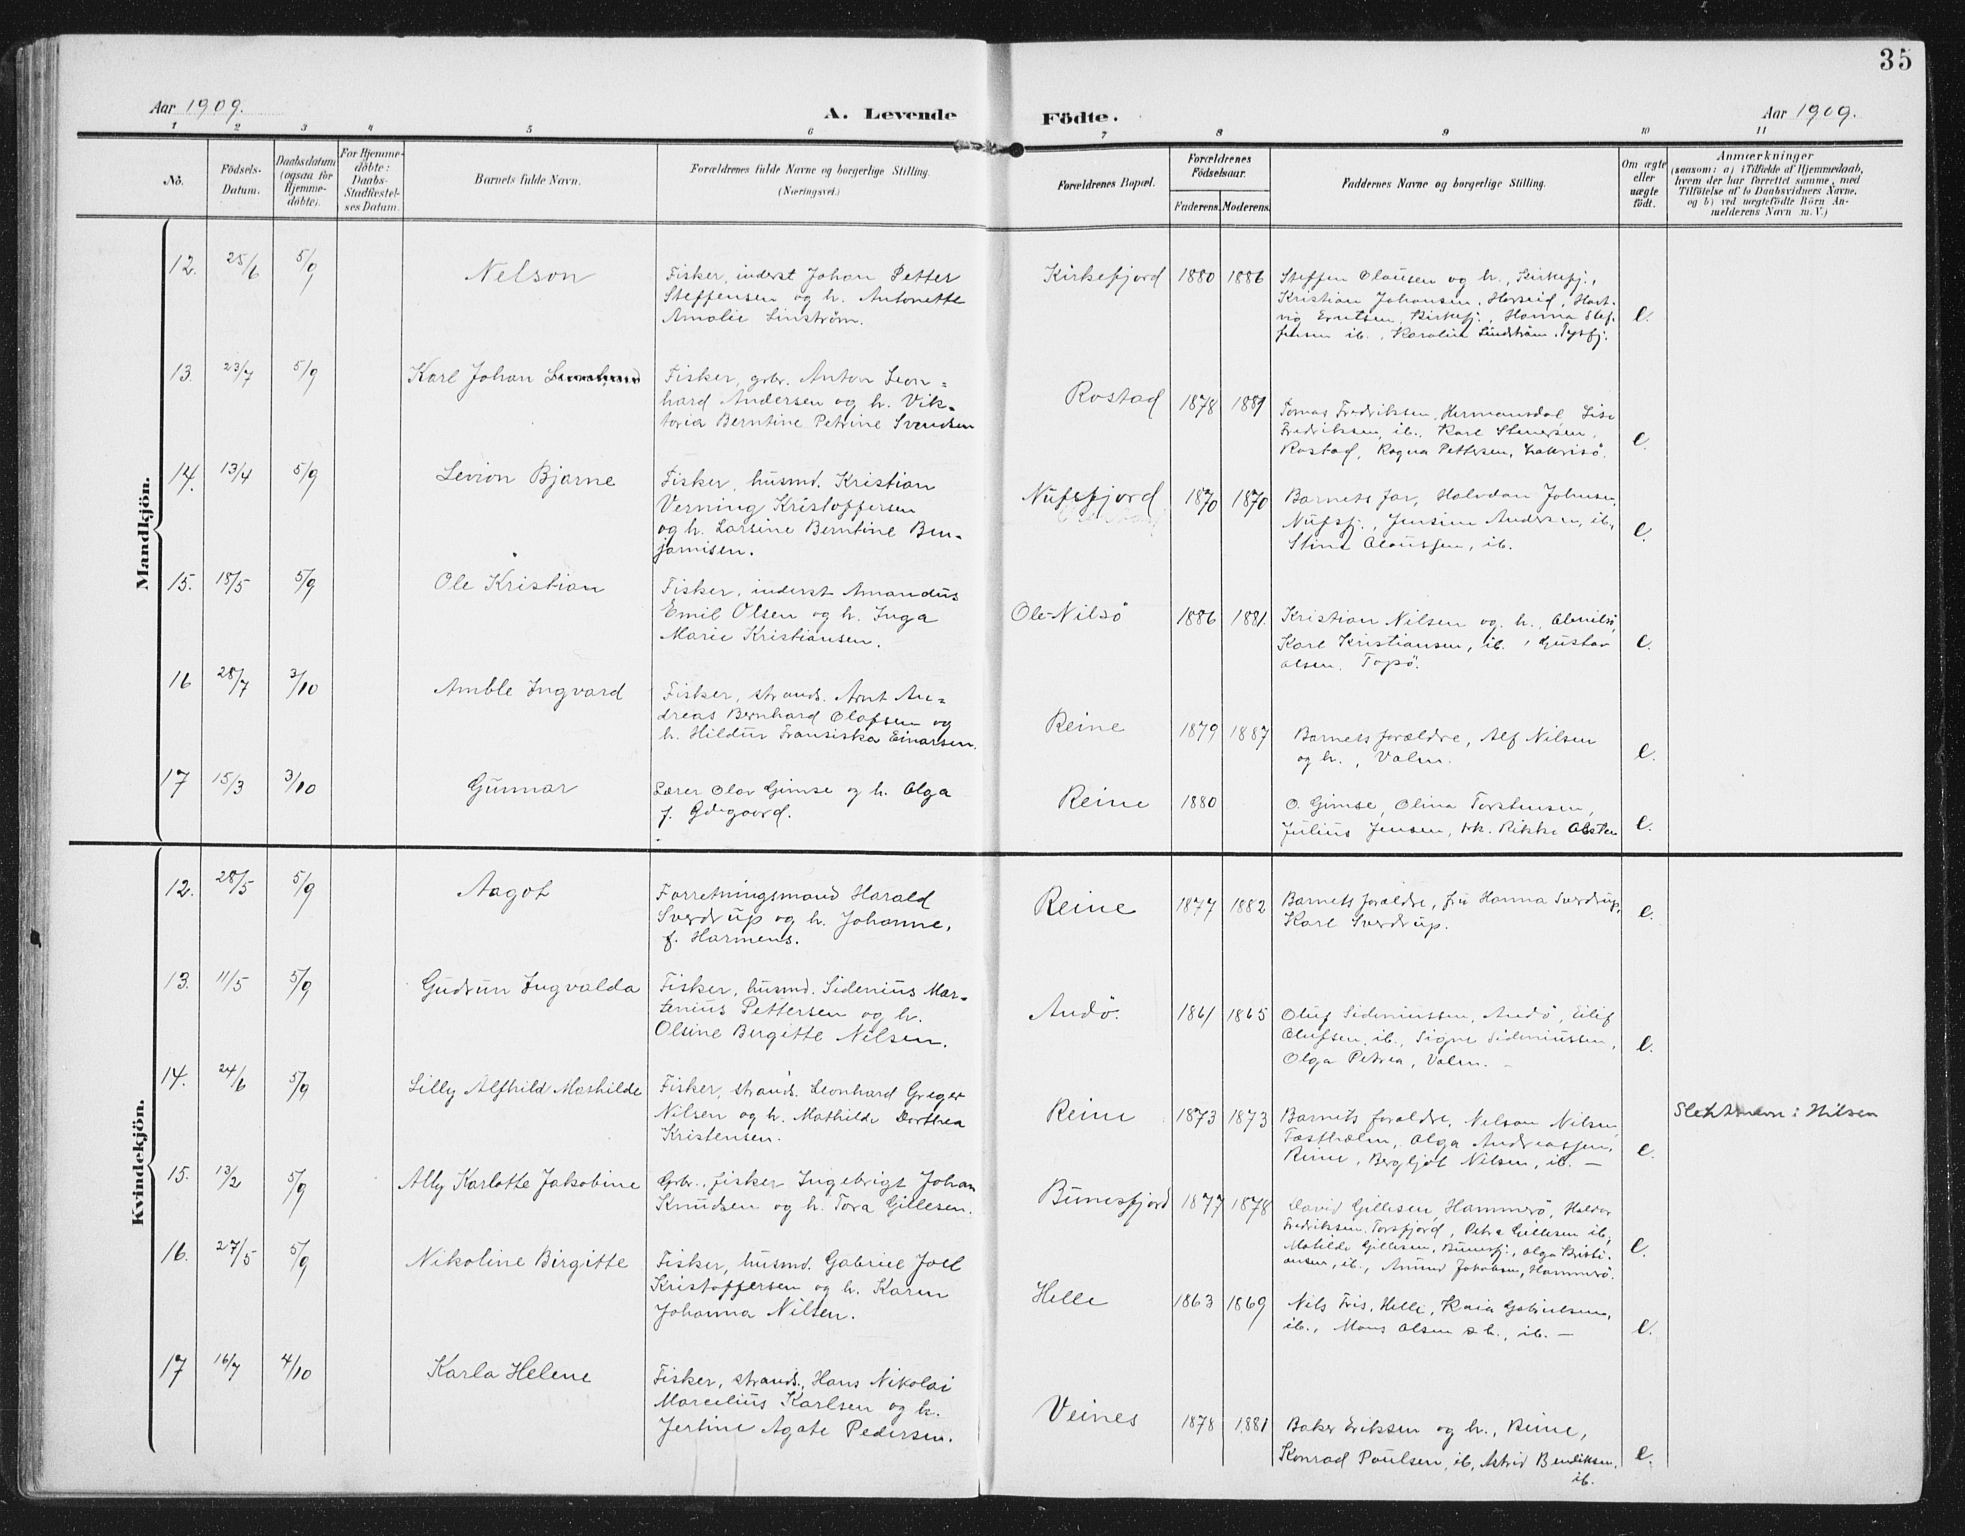 35
Aar 1909.
A. Levende
Födte.
Aar 1909.
1 2 3 4 5 6 7 8 9 10 11
No.
Födsels-
Datum.
Daabsdatum
(ogsaa for
Hjemme-
döbte).
For Hjemme-
döbte:
Daabs-
Stadfestel-
ses Datum.
Barnets fulde Navn.
Forældrenes fulde Navne og borgerlige Stilling.
(Næringsvei.)
Forældrenes Bopæl.
Forældrenes
Födselsaar.
Faderens. Moderens.
Faddernes Navne og borgerlige Stilling.
Om ægte
eller
uægte
födt.
Anmærkninger
(saasom: a) i Tilfælde af Hjemmedaab,
hvem der har forrettet samme, med
Tilföielse af to Daabsvidners Navne,
og b) ved uægtefödte Börn An-
melderens Navn m. V.)
Mandkjön.
12. 25/6 5/9 Nelson
Fisker, inderst Johan Petter
Steffensen og h. Antonette
Amalie Linström.
Kirkefjord 1880 1886
Steffen Olausen og h., Kirkefj.,
Kristian Johansen, Horseid, Hart-
vig Erntsen, Kirkefj., Hanna Stef-
fensen ib., Karolin Lindström, Tysfj.
e.
13. 23/7 5/9 Karl Johan
Fisker, grbr. Anton Leon-
hard Andersen og h. Vik-
toria Berntine Petrine Svendsen
Rostad 1878 1881
Tomas Fredriksen, Hermansdal, Lise
Fredriksen, ib., Karl Steinersen,
Rostad, Ragna Pettersen,
e.
14. 13/4 5/9 Levion Bjarne
Fisker, husmd. Kristian
Verning Kristoffersen
og h. Larsine Berntine Ben-
jamisen.
Nufsfjord 1870 1870
Barnets far, Halvdan Johnsen,
Nufsfj., Jensine Andersen, ib.,
Stina Olaussen, ib.
e.
15. 18/5 5/9 Ole Kristian
Fisker, inderst Amandus
Emil Olsen og h. Inga
Marie Kristiansen.
Ole-Nilsö 1886 1881.
Kristian Nilsen og h., Olenilsö,
Karl Kristiansen, ib., Gustav
Olsen, Topsö.
e.
16 28/7 3/10 Amble Ingvard
Fisker, strands. Arnt An-
dreas Bernhard Olafsen og
h. Hildur Fransiska Einarsen.
Reine 1879 1887
Barnets forældre, Alf Nilsen
og h., Valen.
e.
17 15/3 3/10 Gunnar
Lærer Olav Gimse og h. Olga
f. Ödegaard.
Reine 1880
O. Gimse, Olina Torstensen,
Julius Jensen, Rikke Olsten
e.
Kvindekjön.
12. 28/5 5/9 Aagot
Forretningsmand Harald
Sverdrup og h. Johanne,
f. Harmens.
Reine 1877 1882
Barnets forældre, fru Hanna Sverdrup,
Karl Sverdrup.
e.
13. 11/5 5/9 Gudrun Ingvalda
Fisker, husmd. Sidenius Mar-
tenius Pettersen og h.
Olsine Birgitte Nilsen.
Andö. 1861 1865
Oluf Sideniussen, Andö, Eilif
Olufsen, ib., Signe Sideniussen,
Olga Petrea, Valen. -
e.
14. 24/6 5/9 Lilly Alfhild Mathilde
Fisker, strands. Leonhard Greger
Nilsen og h. Mathilde Dorthea
Kristensen.
Reine 1873 1873
Barnets forældre, Nelson Nilsen
Tostholm, Olga Andreassen,
Reine, Bergljot Nilsen, ib. -
e.
Slektsnavn: Nilsen
15. 13/2 5/9 Ally Karlotte Jakobine
Grbr., fisker Ingebrigt Johan
Knudsen og h. Tora Gillesen.
Bunesfjord 1877 1878
David Gillesen, Hammerö, Halvor
Fredriksen, Torsfjord, Petra Gillesen ib.,
Matilde Gillesen, Bunesfj., Olga Kristi-
ansen, ib., Amund Jakobsen, Hammerö.
e.
16. 27/5 5/9 Nikoline Birgitte
Fisker, husmd. Gabriel Joel
Kristoffersen og h. Karen
Johanna Nilsen.
Helle 1863 1869
Nils Fris, Helle, Kaia Gabrielsen,
ib., Mons Olsen h., ib. -
e.
17 16/7 4/10 Karla Helene
Fisker, strands., Hans Nikolai
Marcelius Karlsen og h.
Jertine Agate Pedersen.
Veines 1878 1881
Baker Eriksen og h., Reine,
Konrad Poulsen, ib., Astrid Bendiksen,
ib.
e.